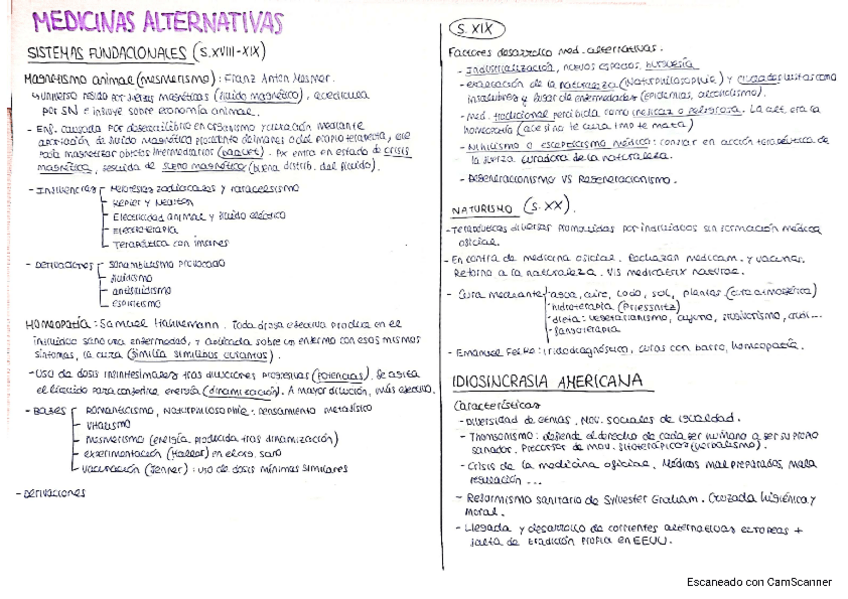 MEDICINAS ALTERNATIVAS
SISTEMAS FUNDACIONALES (S.XVIII-XIX)
Magnetismo animal (mesmerismo): Franz Anton Mesmer.
↳ universo regido por fuerzas magnéticas (fluido magnético),
por SN e influye sobre economía animal.
- Enf. causada por desequilibrio en organismo y curación mediante
aportación de fluido magnético procedente de imanes o del propio terapeuta, que
podía magnetizar objetos intermediarios (baquet). Px entra en estado de crisis
magnética, seguida de sueño magnético (buena distrib. del fluido).
- Influencias
Kepler y Newton
Electricidad animal y fluido eléctrico
Electroterapia
Terapéutica con imanes
- Derivaciones
sonambulismo provocado
fluidismo
antifluidismo
espiritismo
Homeopatía: Samuel Hahnemann. Toda droga efectiva produce en el
individuo sano una enfermedad, y aplicada sobre un enfermo con esos mismos
síntomas, la cura (similia similibus curantur).
- Uso de dosis infinitesimales tras diluciones progresivas (potencias). Se agita
el líquido para conferirle energía (dinamización). A mayor dilución, más efectivo.
- Bases
Romanticismo, Naturphilosophie: pensamiento metafísico
Vitalismo
Mesmerismo (energía producida tras dinamización)
experimentación (Haller) en el org. sano
vacunación (Jenner): uso de dosis mínimas similares
- Derivaciones
S. XIX
Factores desarrollo med. alternativas.
- Industrialización, nuevos espacios, burguesía
- exaltación de la naturaleza (Naturphilosophie) y ciudades vistas como
insalubres y lugar de enfermedades (epidemias, alcoholismo).
- med. tradicional percibida como ineficaz o peligrosa. La alt. era la
homeopatía (que si no te cura no te mata)
- Nihilismo o escepticismo médico: confiar en acción terapéutica de
la fuerza curadora de la naturaleza.
- Degeneracionismo VS Regeneracionismo.
NATURISMO (S. XX).
- Terapéuticas diversas promovidas por individuos sin formación médica
oficial.
- En contra de medicina oficial. Rechazan medicam. y vacunas.
Retorno a la naturaleza. Vis medicatrix naturae.
- Cura mediante
agua, aire, lodo, sol, plantas (cura atmosférica)
hidroterapia (Priessnitz)
dieta: vegetarianismo, ayuno, frugivorismo, crudi...
- Emanuel Felke: iridodiagnóstico, curas con barro, homeopatía.
IDIOSINCRASIA AMERICANA
Características
- Diversidad de etnias. Mov. sociales de igualdad.
- Thomsonismo: defiende el derecho de cada ser humano a ser su propio
sanador. Precursor de mov. fitoterápicos (herbalismo).
- Crisis de la medicina oficial. Médicos mal preparados, mala
regulación ...
- Reformismo sanitario de Sylvester Graham. Cruzada higiénica y
moral.
- Llegada y desarrollo de corrientes alternativas europeas +
falta de tradición propia en EEUU.
Escaneado con CamScanner